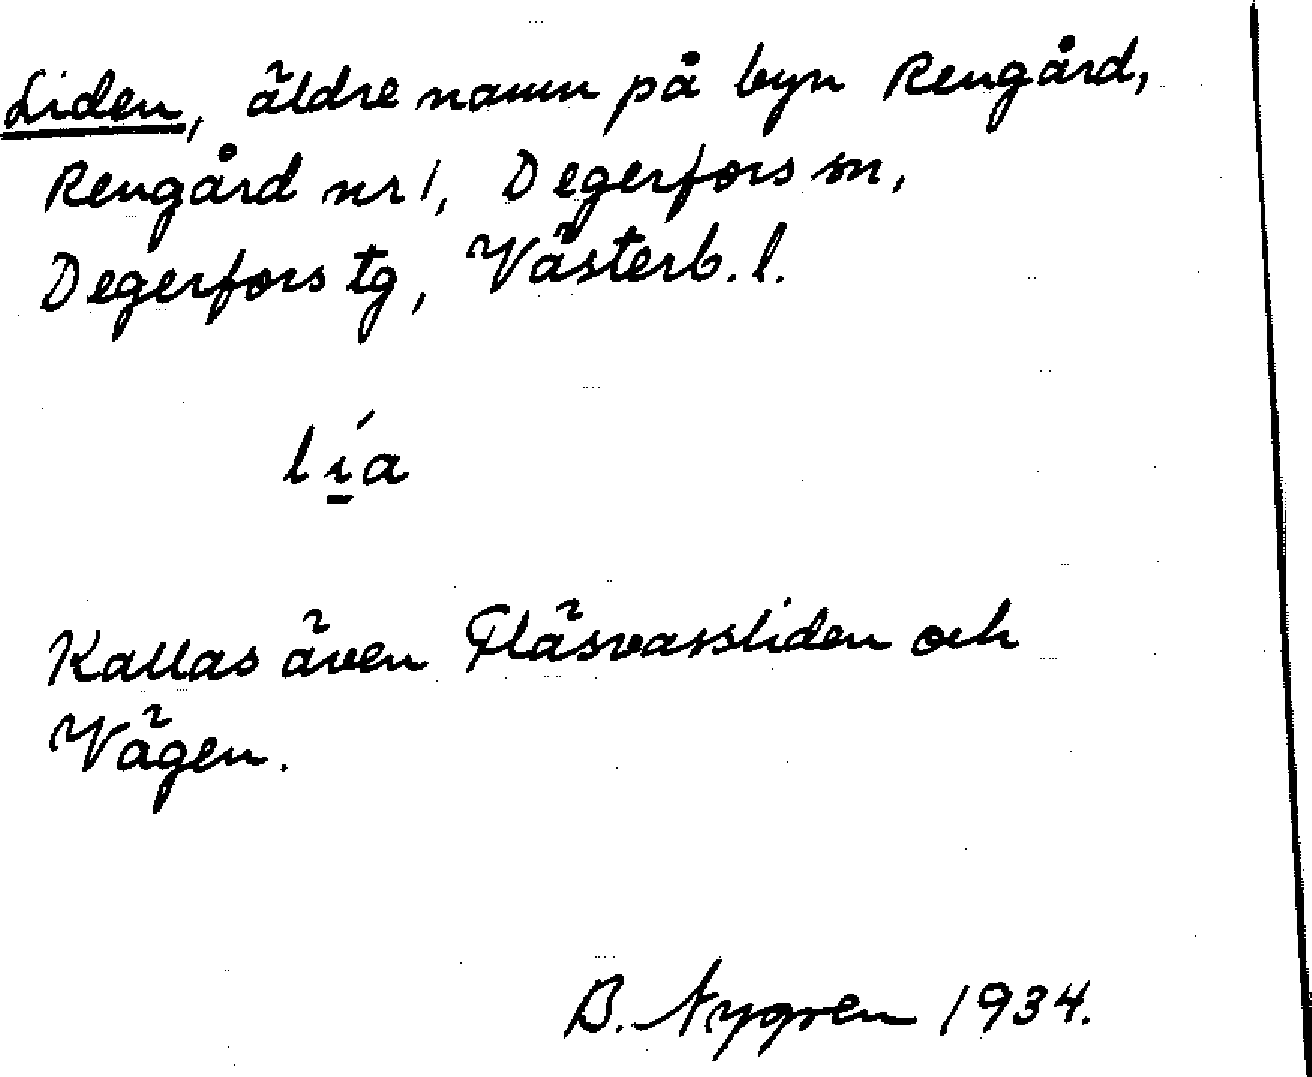 Liden, äldre namn på byn Rengård,
Rengård nr 1, Degerfors sn,
Degerfors tg, Västerb. l.
lı̱́a
Kallas även Fläsvassliden och
Vägen.
B. Nygren 1934.